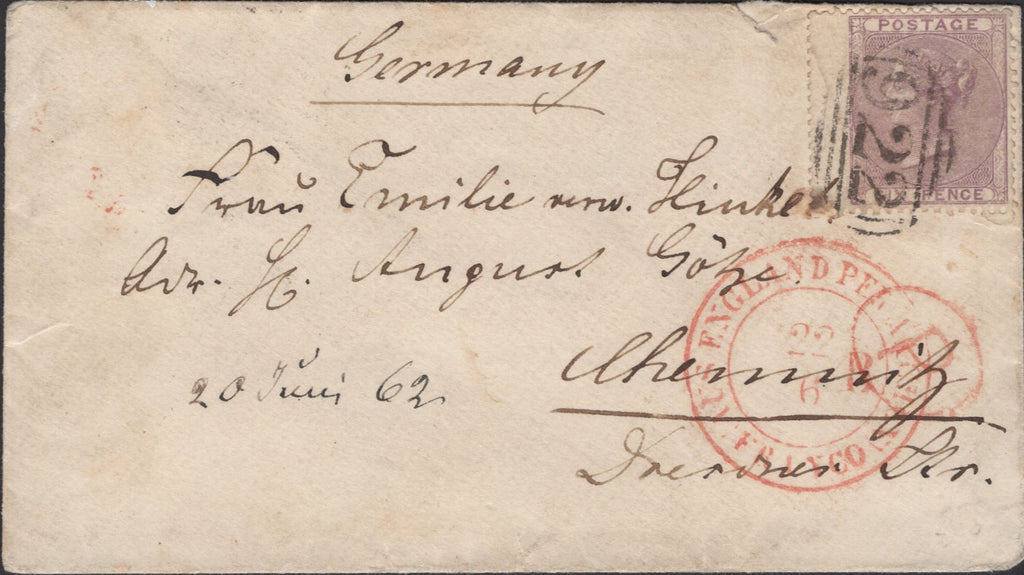 Germany
POSTAGE
922
PENCE
Frau Emilie verw. Hinkel
Adr. H. August Götze
20 Juni 62
Chemnitz
Dresdner Str.
AUS ENGLAND PER AACHEN
FRANCO
22
6